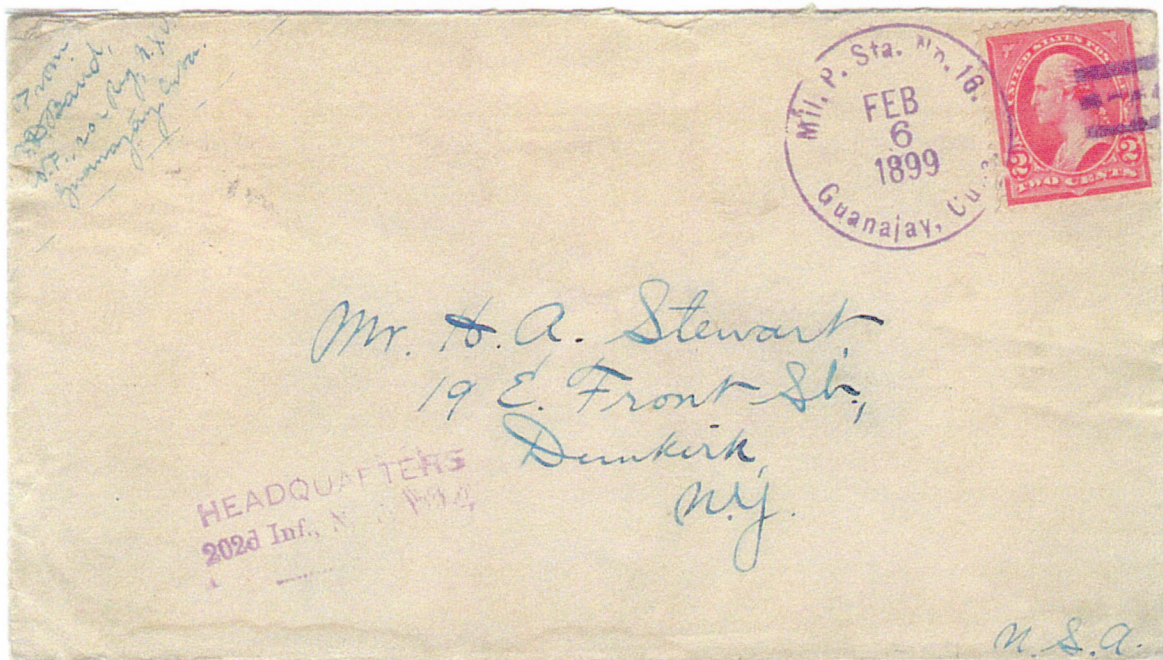 From
Baird,
Guanajay Cuba.
Mil. P. Sta. No. 16.
FEB
6
1899
Guanajay, Cuba
UNITED STATES POS
2 2
TWO CENTS
Mr. H. A. Stewart,
19 E. Front St.,
Dunkirk,
N.Y.
HEADQUARTERS
202d Inf., N.
U.S.A.